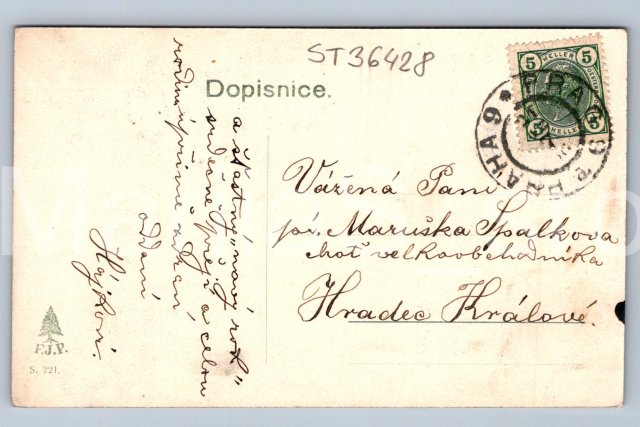 ST36428
Dopisnice.
5 HELLER 5
5 HELLER 5
PRAHA 9 * PRAG 9
a šťastný "nový rok"
srdečně přeje a celou
rodinu upřímně
oddaní
Hájkovi.
Vážená Paní
pí. Maruška Špalkova
choť velkoobchodníka
Hradec Králové.
F.J.P.
S. 221.